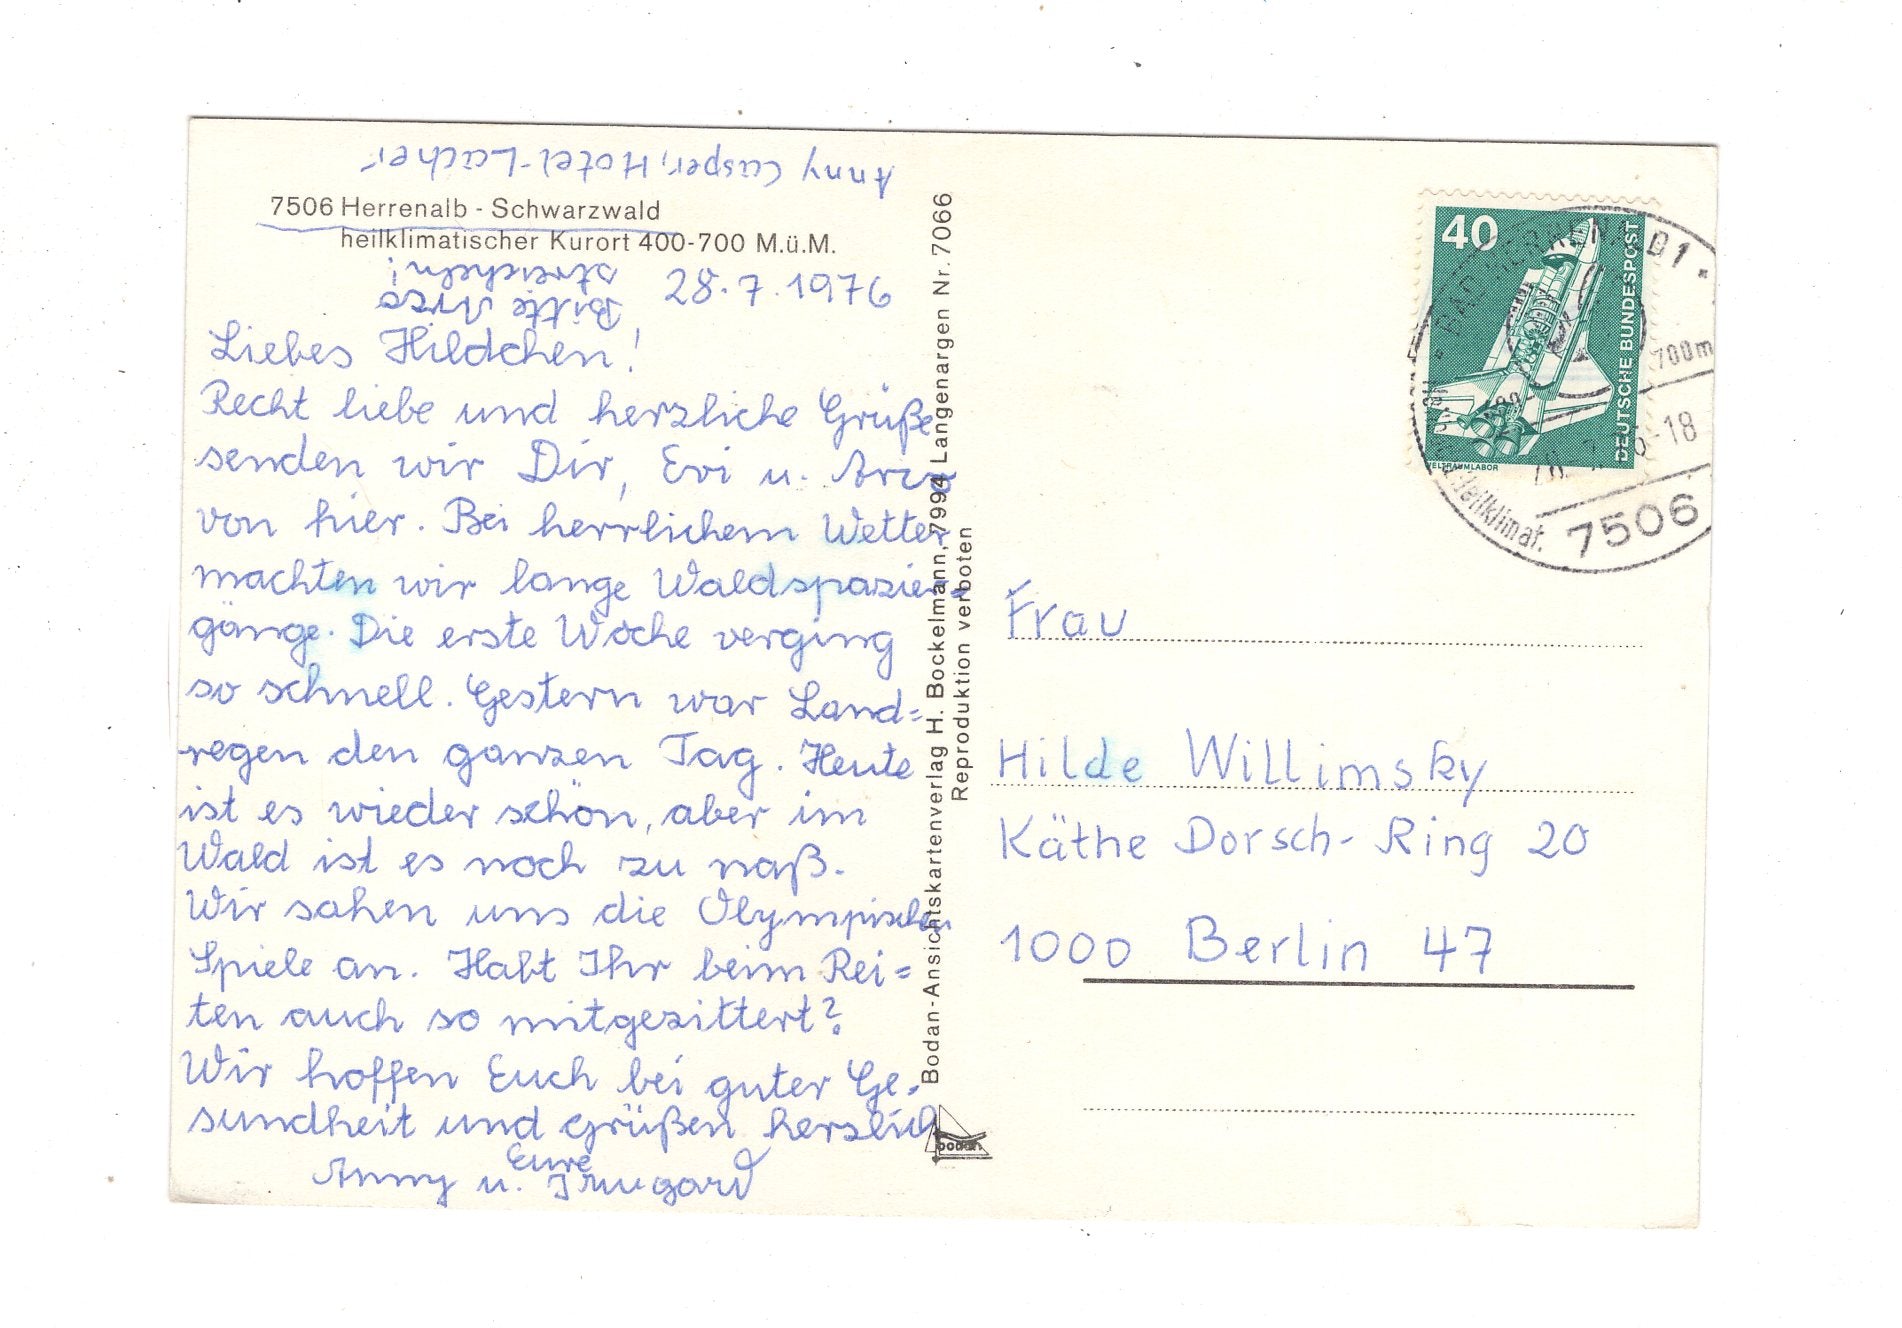 Anny Casper, Hotel-Lacher
7506 Herrenalb - Schwarzwald
heilklimatischer Kurort 400-700 M.ü.M.
28.7.1976
Bitte Arco
streicheln!
Liebes Hildchen!
Recht liebe und herzliche Grüße
senden wir Dir, Evi u. Arco
von hier. Bei herrlichem Wetter
machten wir lange Waldspazier=
gänge. Die erste Woche verging
so schnell. Gestern war Land=
regen den ganzen Tag. Heute
ist es wieder schön, aber im
Wald ist es noch zu naß.
Wir sahen uns die Olympischen
Spiele an. Habt Ihr beim Rei=
ten auch so mitgezittert?
Wir hoffen Euch bei guter Ge=
sundheit und grüßen herzlich
Eure
Anny u. Irmgard
Bodan-Ansichtskartenverlag H. Bockelmann, 7994 Langenargen Nr. 7066
Reproduktion verboten
bodan
40
DEUTSCHE BUNDESPOST
WELTRAUMLABOR
BAD HERRENALB 1
700m
-18
Heilklimat.
7506
Frau
Hilde Willimsky
Käthe Dorsch-Ring 20
1000 Berlin 47